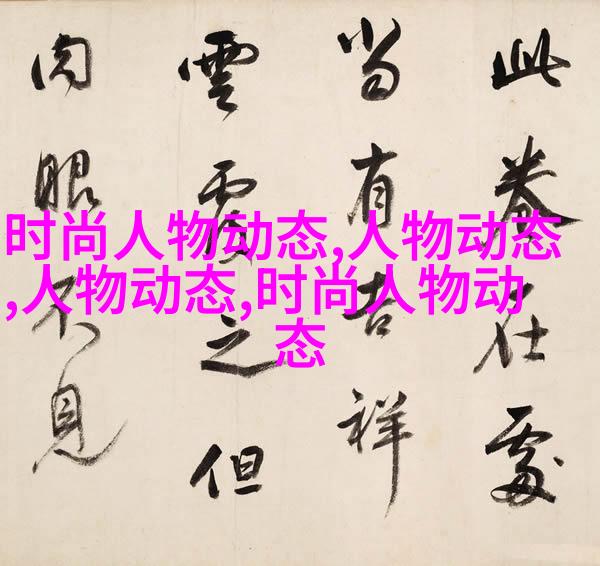 此卷在處
当有吉祥
雲覆之但
肉眼不見
时尚人物动态,人物动态
,人物动态,时尚人物动
态